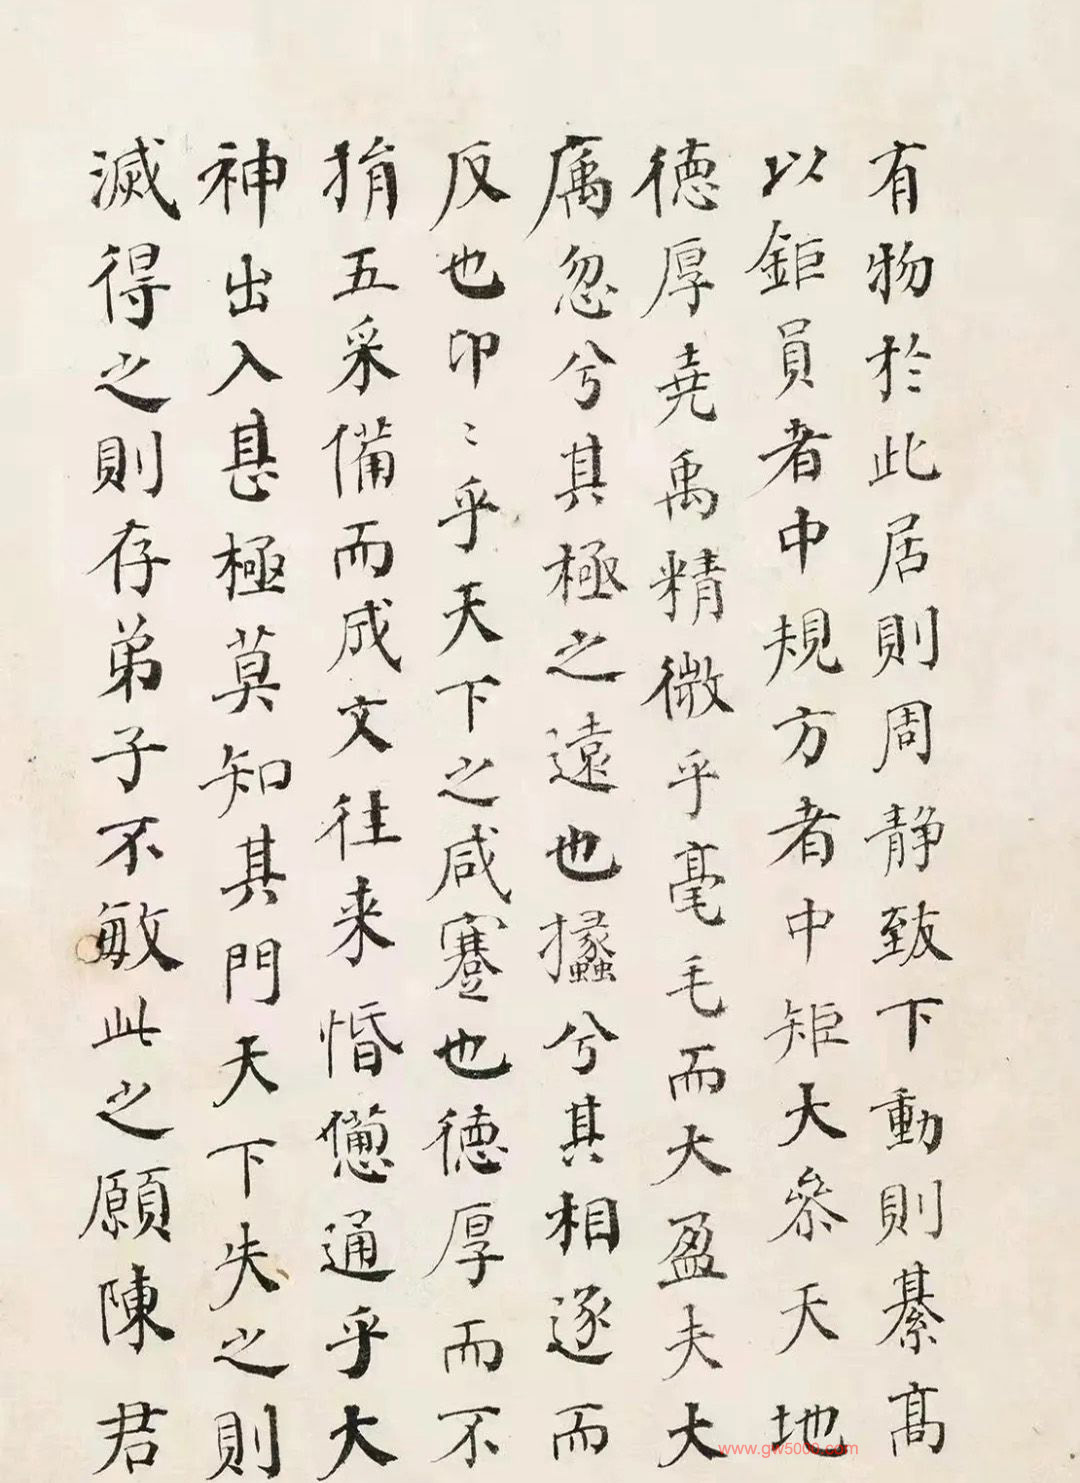 有物於此居則周静致下動則綦髙
以鉅員者中規方者中矩大叅天地
徳厚堯禹精微乎毫毛而大盈夫大
㝢忽兮其極之逺也攭兮其相逐而
反也卬〻乎天下之咸蹇也徳厚而不
捐五采備而成文往来惛憊通乎大
神出入甚極莫知其門天下失之則
滅得之則存弟子不敏此之願陳君
www.gw5000.com